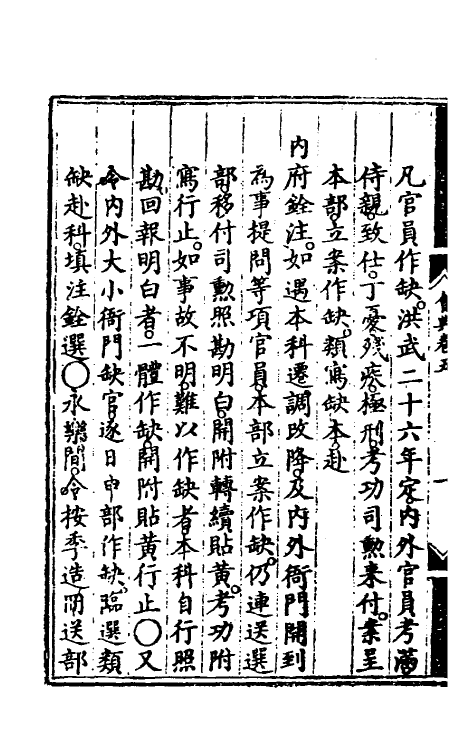 凡官員作缺。洪武二十六年定、内外官員考滿
侍親、致仕、丁憂、殘疾、極刑、考功司勲来付、案呈
本部、立案作缺、類寫缺本、赴
内府銓注。如遇本科遷調改降、及内外衙門開到
為事提問等項官員、本部立案作缺、仍連送選
部、移付司勲照勘明白、開附轉續貼黄、考功附
寫行止。如事故不明、難以作缺者、本科自行照
勘、回報明白者、一體作缺、開附貼黄行止〇又
令内外大小衙門缺官、逐日申部作缺、臨選類
缺赴科、填注銓選〇永樂間、令按季造冊送部
會典卷五
一